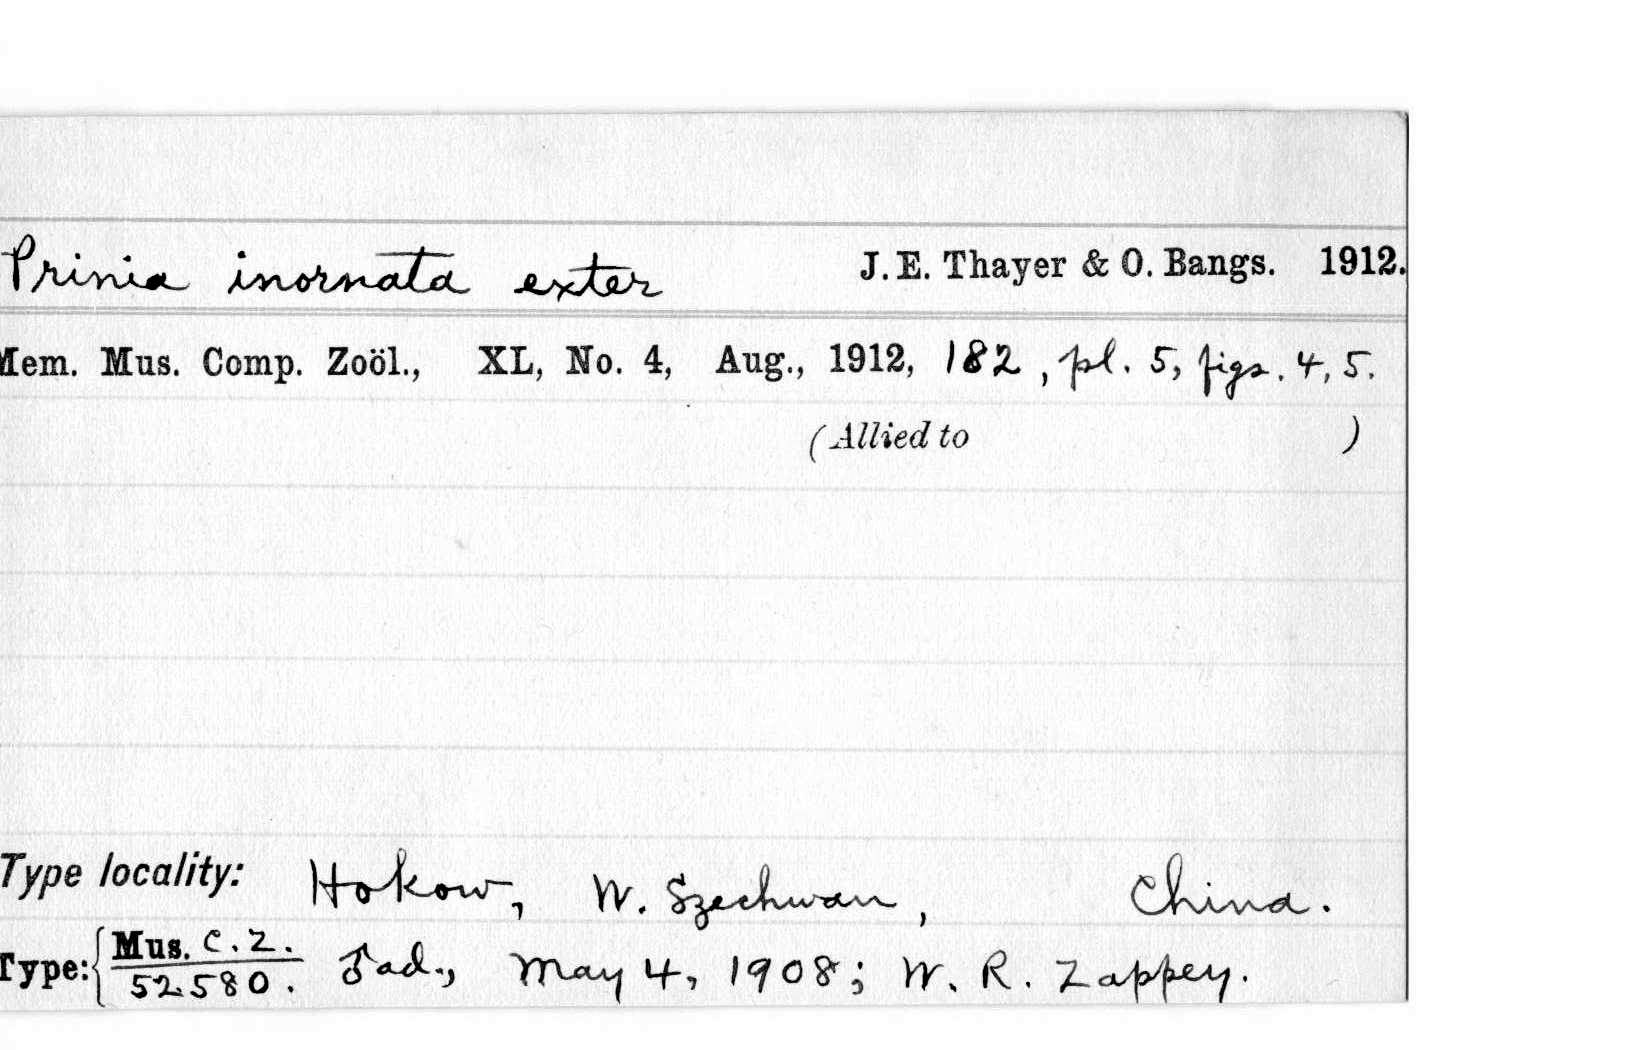 Prinia inornata exter J. E. Thayer & O. Bangs. 1912.
Mem. Mus. Comp. Zoöl., XL, No. 4, Aug., 1912, 182, pl. 5, figs. 4, 5.
(Allied to )
Type locality: Hokow, W. Szechwan, China.
Type: { Mus. C. Z. ♂ ad., May 4, 1908; W. R. Zappey.
52580.